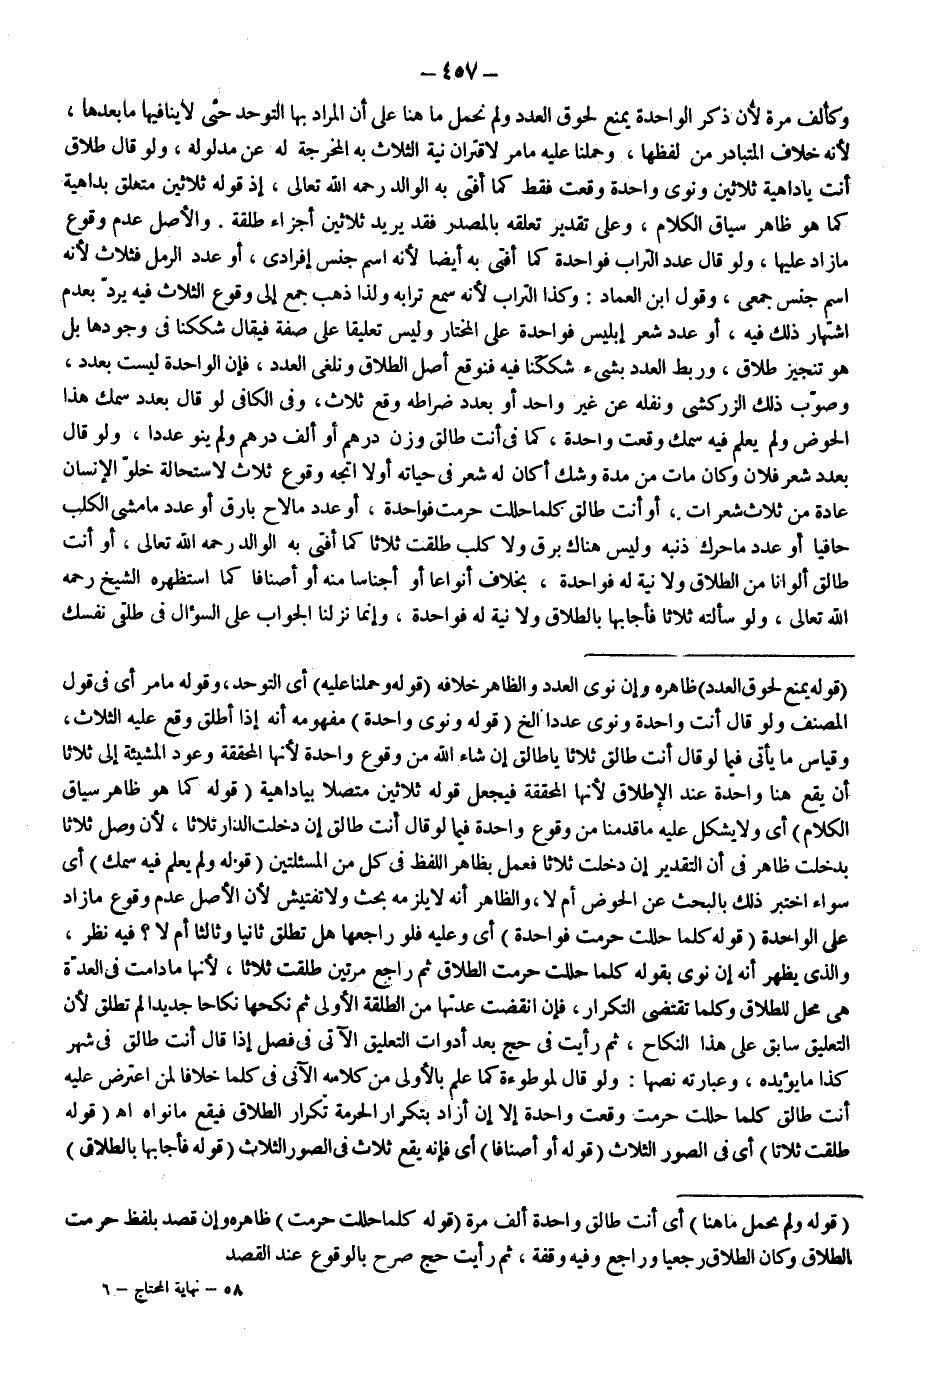 – ٤٥٧ –
وكألف مرة لأن ذكر الواحدة يمنع لحوق العدد ولم نحمل ما هنا على أن المراد بها التوحد حتى لاينافيها مابعدها ،
لأنه خلاف المتبادر من لفظها ، وحملنا عليه مامر لاقتران نية الثلاث به المخرجة له عن مدلوله ، ولو قال طلاق
أنت ياداهية ثلاثين ونوى واحدة وقعت فقط كما أفتى به الوالد رحمه الله تعالى ، إذ قوله ثلاثين متعلق بداهية
كما هو ظاهر سياق الكلام ، وعلى تقدير تعلقه بالمصدر فقد يريد ثلاثين أجزاء طلقة . والأصل عدم وقوع
مازاد عليها ، ولو قال عدد التراب فواحدة كما أفتى به أيضا لأنه اسم جنس إفرادى ، أو عدد الرمل فثلاث لأنه
اسم جنس جمعى ، وقول ابن العماد : وكذا التراب لأنه سمع ترابه ولذا ذهب جمع إلى وقوع الثلاث فيه يردّ بعدم
اشتهار ذلك فيه ، أو عدد شعر إبليس فواحدة على المختار وليس تعليقا على صفة فيقال شككنا فى وجودها بل
هو تنجيز طلاق ، وربط العدد بشىء شككنا فيه فنوقع أصل الطلاق ونلغى العدد ، فإن الواحدة ليست بعدد ،
وصوّب ذلك الزركشى ونقله عن غير واحد أو بعدد ضراطه وقع ثلاث، وفى الكافى لو قال بعدد سمك هذا
الحوض ولم يعلم فيه سمك وقعت واحدة ، كما فى أنت طالق وزن درهم أو ألف درهم ولم ينو عددا ، ولو قال
بعدد شعر فلان وكان مات من مدة وشك أكان له شعر فى حياته أولا اتجه وقوع ثلاث لاستحالة خلوّ الإنسان
عادة من ثلاث شعرات ، أو أنت طالق كلما حللت حرمت فواحدة ، أو عدد مالاح بارق أو عدد مامشى الكلب
حافيا أو عدد ماحرك ذنبه وليس هناك برق ولا كلب طلقت ثلاثا كما أفتى به الوالد رحمه الله تعالى ، أو أنت
طالق ألوانا من الطلاق ولا نية له فواحدة ، بخلاف أنواعا أو أجناسا منه أو أصنافا كما استظهره الشيخ رحمه
الله تعالى ، ولو سألته ثلاثا فأجابها بالطلاق ولا نية له فواحدة ، وإنما نزلنا الجواب على السؤال فى طلقى نفسك
(قوله يمنع لحوق العدد) ظاهره وإن نوى العدد والظاهر خلافه (قوله وحملنا عليه) أى التوحد، وقوله مامر أى فى قول
المصنف ولو قال أنت واحدة ونوى عددا الخ ( قوله ونوى واحدة ) مفهومه أنه إذا أطلق وقع عليه الثلاث ،
وقياس ما يأتى فيما لو قال أنت طالق ثلاثا ياطالق إن شاء الله من وقوع واحدة لأنها المحققة وعود المشيئة إلى ثلاثا
أن يقع هنا واحدة عند الإطلاق لأنها المحققة فيجعل قوله ثلاثين متصلا بياداهية ( قوله كما هو ظاهر سياق
الكلام ) أى ولايشكل عليه ماقدمنا من وقوع واحدة فيما لو قال أنت طالق إن دخلت الدار ثلاثا ، لأن وصل ثلاثا
بدخلت ظاهر فى أن التقدير إن دخلت ثلاثا فعمل بظاهر اللفظ فى كل من المسئلتين ( قوله ولم يعلم فيه سمك ) أى
سواء اختبر ذلك بالبحث عن الحوض أم لا ، والظاهر أنه لايلزمه بحث ولاتفتيش لأن الأصل عدم وقوع مازاد
على الواحدة ( قوله كلما حللت حرمت فواحدة ) أى وعليه فلو راجعها هل تطلق ثانيا وثالثا أم لا ؟ فيه نظر ،
والذى يظهر أنه إن نوى بقوله كلما حللت حرمت الطلاق ثم راجع مرتين طلقت ثلاثا ، لأنها مادامت فى العدّة
هى محل للطلاق وكلما تقتضى التكرار ، فإن انقضت عدتها من الطلقة الأولى ثم نكحها نكاحا جديدا لم تطلق لأن
التعليق سابق على هذا النكاح ، ثم رأيت فى حج بعد أدوات التعليق الآتى فى فصل إذا قال أنت طالق فى شهر
كذا مايؤيده ، وعبارته نصها : ولو قال لموطوءة كما علم بالأولى من كلامه الآتى فى كلما خلافا لمن اعترض عليه
أنت طالق كلما حللت حرمت وقعت واحدة إلا إن أراد بتكرار الحرمة تكرار الطلاق فيقع مانواه اه ( قوله
طلقت ثلاثا ) أى فى الصور الثلاث ( قوله أو أصنافا ) أى فإنه يقع ثلاث فى الصور الثلاث ( قوله فأجابها بالطلاق )
( قوله ولم يحمل ماهنا ) أى أنت طالق واحدة ألف مرة (قوله كلما حللت حرمت ) ظاهره وإن قصد بلفظ حرمت
الطلاق وكان الطلاق رجعيا وراجع وفيه وقفة ، ثم رأيت حج صرح بالوقوع عند القصد
٥٨ – نهاية المحتاج – ٦